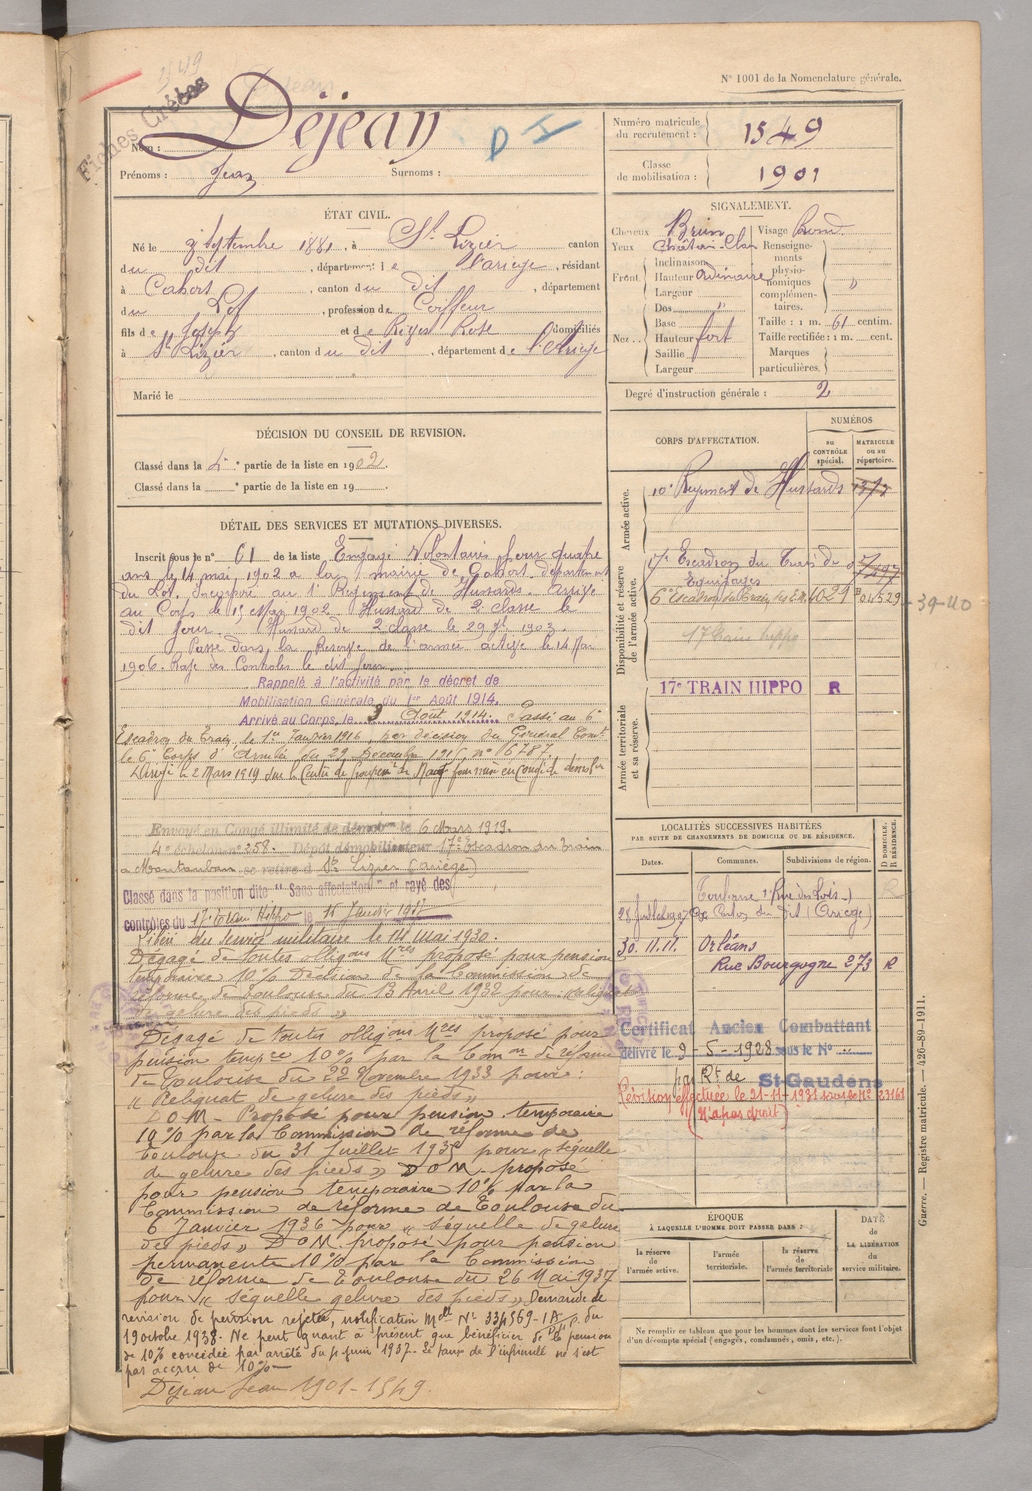 N° 1001 de la Nomenclature générale.
1549
Fiches Créées
Nom : Déjean
D I
Prénoms : Jean Surnoms :
Numéro matricule du recrutement : 1549
Classe de mobilisation : 1901
ÉTAT CIVIL.
Né le 9 Septembre 1881, à St Lizier canton
du dit, département de l'Ariège, résidant
à Cahors, canton du dit, département
du Lot, profession de Coiffeur
fils de Joseph et de Rose domiciliés
à St Lizier, canton du dit, département de l'Ariège
Marié le
SIGNALEMENT.
Cheveux Brun
Yeux Châtain Clair
Front Inclinaison
Hauteur Ordinaire
Largeur
Nez Dos "
Base
Hauteur fort
Saillie
Largeur
Visage Rond
Renseignements physionomiques complémentaires. "
Taille : 1 m. 61 centim.
Taille rectifiée : 1 m. cent.
Marques particulières.
Degré d'instruction générale : 2
DÉCISION DU CONSEIL DE REVISION.
Classé dans la ° partie de la liste en 1902.
Classé dans la ° partie de la liste en 19
DÉTAIL DES SERVICES ET MUTATIONS DIVERSES.
Inscrit sous le n° 61 de la liste Engagé Volontaire pour quatre
ans le 14 mai 1902 a la mairie de Cahors département
du Lot. Incorporé au Régiment de Hussards. Arrivé
au Corps le 15 Mai 1902 Hussard de 2 classe le
dit jour. Hussard de 2 classe le 29 7bre 1903.
Passé dans la Réserve de l'armée active le 14 Mai
1906. Rayé des Contrôles le dit jour.
Rappelé à l'activité par le décret de
Mobilisation Générale du 1er Août 1914.
Arrivé au Corps, le 3 Août 1914. Passé au 6e
Escadron du Train, le 1er Janvier 1916, par décision du Général Comt
le 6e Corps d'Armée du 29 Décembre 1915, n° 16787.
Dirigé le 2 Mars 1919 sur le Centre de
Envoyé en Congé illimité de démobon le 6 Mars 1919.
4e échelon n° 258. Dépôt démobilisateur 17e Escadron du train
a Montauban se retire à St Lizier (Ariège)
Classé dans la position dite "Sans affectation" et rayé des
contrôles du 17e Train Hippo le 15 Janvier 1927
Libéré du service militaire le 14 mai 1930.
Dégagé de toutes obligons Mres proposé pour pension
temporaire 10% Décision de la Commission de
réforme de Toulouse du 13 Avril 1932 pour : reliquat
de gelure des pieds »
Dégagé de toutes obligons Mres proposé pour
pension tempre 10% par la Comon de réforme
de Toulouse du 22 Novembre 1933 pour :
« Reliquat de gelure des pieds »
D.O.M. Proposé pour pension temporaire
10% par la Commission de réforme de
Toulouse du 31 Juillet 1935 pour « séquelle
de gelure des pieds » D.O.M. proposé
pour pension temporaire 10% par la
Commission de réforme de Toulouse du
6 Janvier 1936 pour « séquelle de gelure
des pieds » D.O.M. proposé pour pension
permanente 10% par la Commission
de réforme de Toulouse du 26 Mai 1937
pour « séquelle gelure des pieds » Demande de
revision de pension rejetée, notification Mlle N° 334569-IA p. du
19 octobre 1938. Ne peut quant à présent que bénéficier de la pension
de 10% concédée par arrêté du 4 juin 1937. Le taux de l'infirmité ne s'est
pas accru de 10%
Dejean Jean 1901-1549.
CORPS D'AFFECTATION.
NUMÉROS
au CONTRÔLE spécial.
MATRICULE ou au répertoire.
Armée active.
10e Régiment de Hussards
Disponibilité et réserve de l'armée active.
17e Escadron du Train des Equipages
6e Escadron du Train des E.M. 4029 04529
39-40
17 train hippo
Armée territoriale et sa réserve.
17e TRAIN HIPPO R
LOCALITÉS SUCCESSIVES HABITÉES
PAR SUITE DE CHANGEMENTS DE DOMICILE OU DE RÉSIDENCE.
Dates. Communes. Subdivisions de région. D DOMICILE, R RÉSIDENCE.
Toulouse 1 Rue des Lois R
28 Juillet 1907 Canton du dit (Ariège)
30.11.11. Orléans
Rue Bourgogne 273 R
Certificat Ancien Combattant
délivré le 9-5-1928 sous le N°
par Rt de St-Gaudens
Révision effectuée le 21-11-1931 sous le N° 23161
(N'a pas droit)
ÉPOQUE
À LAQUELLE L'HOMME DOIT PASSER DANS :
la réserve de l'armée active.
l'armée territoriale.
la réserve de l'armée territoriale
DATE de LA LIBÉRATION du service militaire.
Ne remplir ce tableau que pour les hommes dont les services font l'objet
d'un décompte spécial (engagés, condamnés, omis, etc.).
Guerre. — Registre matricule. — 426-89-1911.